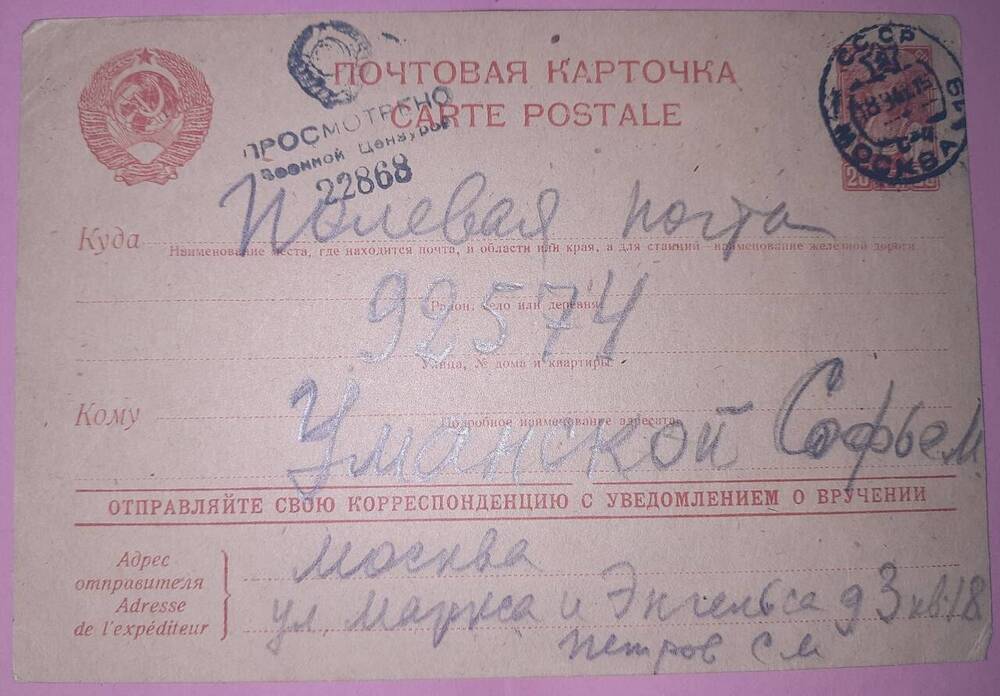 ПОЧТОВАЯ КАРТОЧКА
CARTE POSTALE
ПРОСМОТРЕНО
Военной Цензурой
22868
СССР
МОСКВА
20
Куда Полевая почта
Наименование места, где находится почта, и области или края, а для станций наименование железной дороги
92574
Район, село или деревня
Улица, № дома и квартиры
Подробное наименование адресата
Кому Уманской Софьей
ОТПРАВЛЯЙТЕ СВОЮ КОРРЕСПОНДЕНЦИЮ С УВЕДОМЛЕНИЕМ О ВРУЧЕНИИ
Адрес
отправителя
Adresse
de l'expéditeur
Москва
ул. Маркса и Энгельса д 3 кв 18
Петров С М